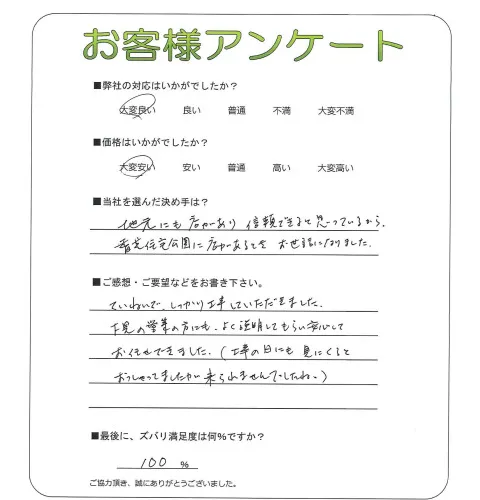 お客様アンケート
■弊社の対応はいかがでしたか？
大変良い 良い 普通 不満 大変不満
■価格はいかがでしたか？
大変安い 安い 普通 高い 大変高い
■当社を選んだ決め手は？
地元にも店があり 信頼できると思っているから、
住宅公園に店があるときお世話になりました。
■ご感想・ご要望などをお書き下さい。
ていねいで、しっかり工事していただきました。
下見の営業の方にも、よく説明してもらい安心して
お任せできました。（工事の日にも見にくると
おっしゃってましたが来られませんでしたね。）
■最後に、ズバリ満足度は何%ですか？
100 %
ご協力頂き、誠にありがとうございました。